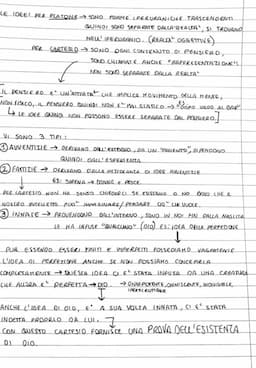 LE IDEE: PER PLATONE → SONO FORME IPERURANICHE TRASCENDENTI
QUINDI SONO SEPARATE DALLA REALTA', SI TROVANO
NELL'IPERURANIO. (REALTA' OGGETTIVE)
PER CARTESIO → SONO OGNI CONTENUTO DI PENSIERO,
SONO CHIAMATE ANCHE "RAPPRESENTAZIONI"
NON SONO SEPARATE DALLA REALTA'
IL PENSIERO E' UN'ATTIVITA' CHE IMPLICA MOVIMENTO DELLA MENTE,
NON E' FISSO, IL PENSIERO QUINDI NON E' MAI STATICO →
LE IDEE QUINDI NON POSSONO ESSERE SEPARATE DAL PENSIERO
VI SONO 3 TIPI:
① AVVENTIZIE → DERIVANO DALL'ESTERNO, DA UN , DIPENDONO
QUINDI DALL'ESPERIENZA
② FATTIZIE → DERIVANO DALLA MESCOLANZA DI IDEE AVVENTIZIE
ES: SIRENA → DONNE E PESCE.
PER CARTESIO NON HA SENSO CHIEDERCI SE ESISTONO O NO DATO CHE IL
NOSTRO INTELLETTO PUO' IMMAGINARE/PENSARE CIO' CHE VUOLE.
③ INNATE → PROVENGONO DALL'INTERNO, SONO IN NOI FIN DALLA NASCITA
LE HA INFUSE "QUALCUNO" (DIO) ES: IDEA DELLA PERFEZIONE
PUR ESSENDO ESSERI FINITI E IMPERFETTI POSSEDIAMO VAGAMENTE
L'IDEA DI PERFEZIONE ANCHE SE NON POSSIAMO CONCEPIRLA
COMPLETAMENTE → QUESTA IDEA CI E' STATA INFUSA DA UNA CREATURA
CHE ALLORA E' PERFETTA → DIO → ONNIPOTENTE, ONNISCIENTE,
ANCHE L'IDEA DI DIO, E' A SUA VOLTA INNATA, CI E' STATA
INDOTTA PROPRIO DA LUI.
CON QUESTO CARTESIO FORNISCE UNA PROVA DELL'ESISTENZA
DI DIO.